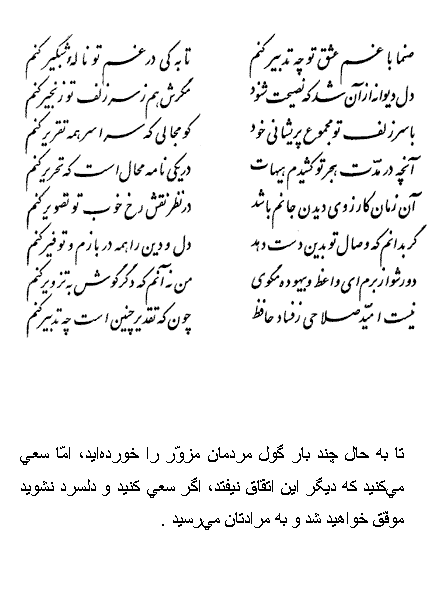 صنما با غم عشق تو چه تدبیر کنم
تا به کی در غم تو ناله شبگیر کنم
دل دیوانه از آن شد که نصیحت شنود
مگرش هم ز سر زلف تو زنجیر کنم
با سر زلف تو مجموع پریشانی خود
کو مجالی که سراسر همه تقریر کنم
آنچه در مدت هجر تو کشیدم هیهات
در یکی نامه محال است که تحریر کنم
آن زمان کارزوی دیدن جانم باشد
در نظر نقش رخ خوب تو تصویر کنم
گر بدانم که وصال تو بدین دست دهد
دل و دین را همه در بازم و توفیر کنم
دور شو از برم ای واعظ و بیهوده مگوی
من نه آنم که دگر گوش به تزویر کنم
نیست امید صلاحی ز فساد حافظ
چون که تقدیر چنین است چه تدبیر کنم
تا به حال چند بار گول مردمان مزوّر را خورده‌اید، امّا سعي
مي‌کنید که دیگر این اتفاق نیفتد، اگر سعي کنید و دلسرد نشوید
موفّق خواهید شد و به مرادتان مي‌رسید .